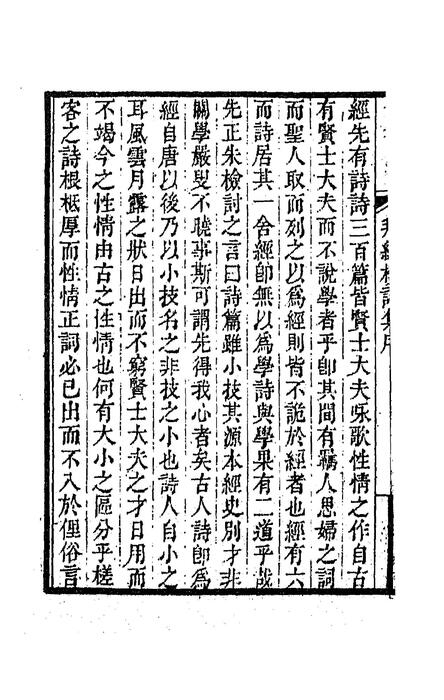 經先有詩詩三百篇皆賢士大夫咏歌性情之作自古
有賢士大夫而不說學者乎卽其間有羈人思婦之詞
而聖人取而列之以爲經則皆不詭於經者也經有六
而詩居其一舍經卽無以爲學詩與學果有二道乎哉
先正朱檢討之言曰詩篇雖小技其源本經史別才非
關學嚴叟不聽事斯可謂先得我心者矣古人詩卽爲
經自唐以後乃以小技名之非技之小也詩人自小之
耳風雲月露之狀日出而不窮賢士大夫之才日用而
不竭今之性情由古之性情也何有大小之區分乎槎
客之詩根柢厚而性情正詞必已出而不入於俚俗言